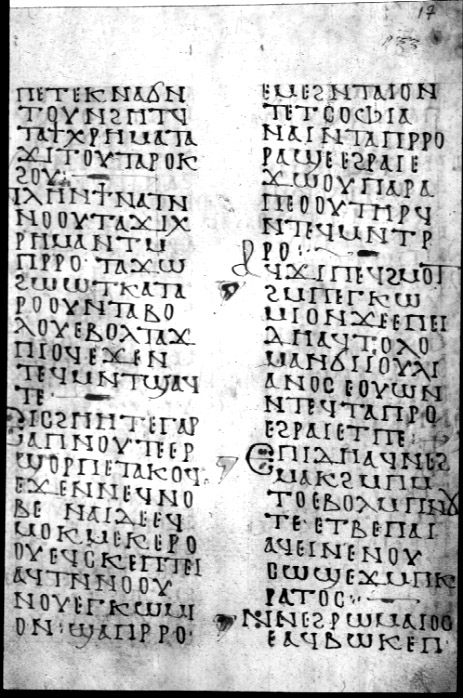 17
ⲡⲉⲧⲉⲕⲛⲁϭⲛ
ⲧⲟⲩⲛϩⲏⲧϥ
ⲧⲁⲧⲭⲣⲏⲙⲁⲧⲁ
ϫⲓⲧⲟⲩⲧⲁⲣⲟⲕ
ϩⲟⲩ
ⲛⲟⲟⲩⲧⲁϫⲓⲭ
ⲣⲏⲙⲁⲛⲧⲙ
ⲡⲣⲣⲟ ⲧⲁϫⲱ
ϩⲱⲱⲧⲕⲁⲧⲁ
ⲣⲟⲟⲩⲛⲧⲁⲃⲟ
ⲗⲟⲩⲉⲃⲟⲗⲧⲁϫ
ⲡⲓⲟϥⲉϫⲉⲛ
ⲧⲉϥⲙⲛⲧϣⲁϥ
ⲧⲉ
ⲉⲓⲥϩⲏⲏⲧⲉⲅⲁⲣ
ⲁⲡⲛⲟⲩⲧⲉⲉⲣ
ϣⲟⲣⲡⲉⲧⲁⲕⲟϥ
ⲉϫⲉⲛⲛⲉϥⲛⲟ
ⲃⲉ ⲛⲁⲓⲇⲉⲉϥ
ⲙⲟⲕⲙⲉⲕⲉⲣⲟ
ⲟⲩⲉϥⲥⲕⲉⲡⲧⲉⲓ
ⲁϥⲧⲛⲛⲟⲟⲩ
ⲛⲟⲩⲉⲅⲕⲱⲙⲓ
ⲟⲛ· ϣⲁⲡⲣⲣⲟ
ⲉⲙⲉϩⲛⲧⲁⲓⲟⲛ
ⲧⲉⲧⲥⲟⲫⲓⲁ
ⲛⲁⲓⲛⲧⲁⲡⲣⲣⲟ
ⲣⲁϣⲉⲉϩⲣⲁⲓⲉ
ϫⲱⲟⲩⲡⲁⲣⲁ
ⲡⲉⲟⲟⲩⲧⲏⲣϥ
ⲛⲧⲉϥⲙⲛⲧⲣ
ⲣⲟ·
ⲁϥϫⲓⲡⲉϥϩⲙⲟⲧ
ϩⲙⲡⲉⲅⲕⲱ
ⲙⲓⲟⲛϫⲉⲉⲡⲉⲓ
ⲇⲏⲁϥⲧⲟⲗⲟ
ⲙⲁⲛϭⲓⲟⲩⲗⲓ
ⲁⲛⲟⲥⲉⲟⲩⲱⲛ
ⲛⲧⲉϥⲧⲁⲡⲣⲟ
ⲉϩⲣⲁⲓⲉⲧⲡⲉ·
ⲉⲡⲓⲇⲏⲁϥⲛⲉϩ
ⲙⲁⲕϩⲙⲡⲙ
ⲧⲟⲉⲃⲟⲗⲙⲡⲛⲟⲩ
ⲧⲉ· ⲉⲧⲃⲉⲡⲁⲓ
ⲁϥⲉⲓⲛⲉⲛⲟⲩ
ⲥⲱϣⲉϫⲙⲡⲕ
ⲣⲁⲧⲟⲥ·
ⲛⲛⲉϩⲣⲱⲙⲁⲓⲟⲥ
ⲉⲁϥⲃⲱⲕⲉⲡ